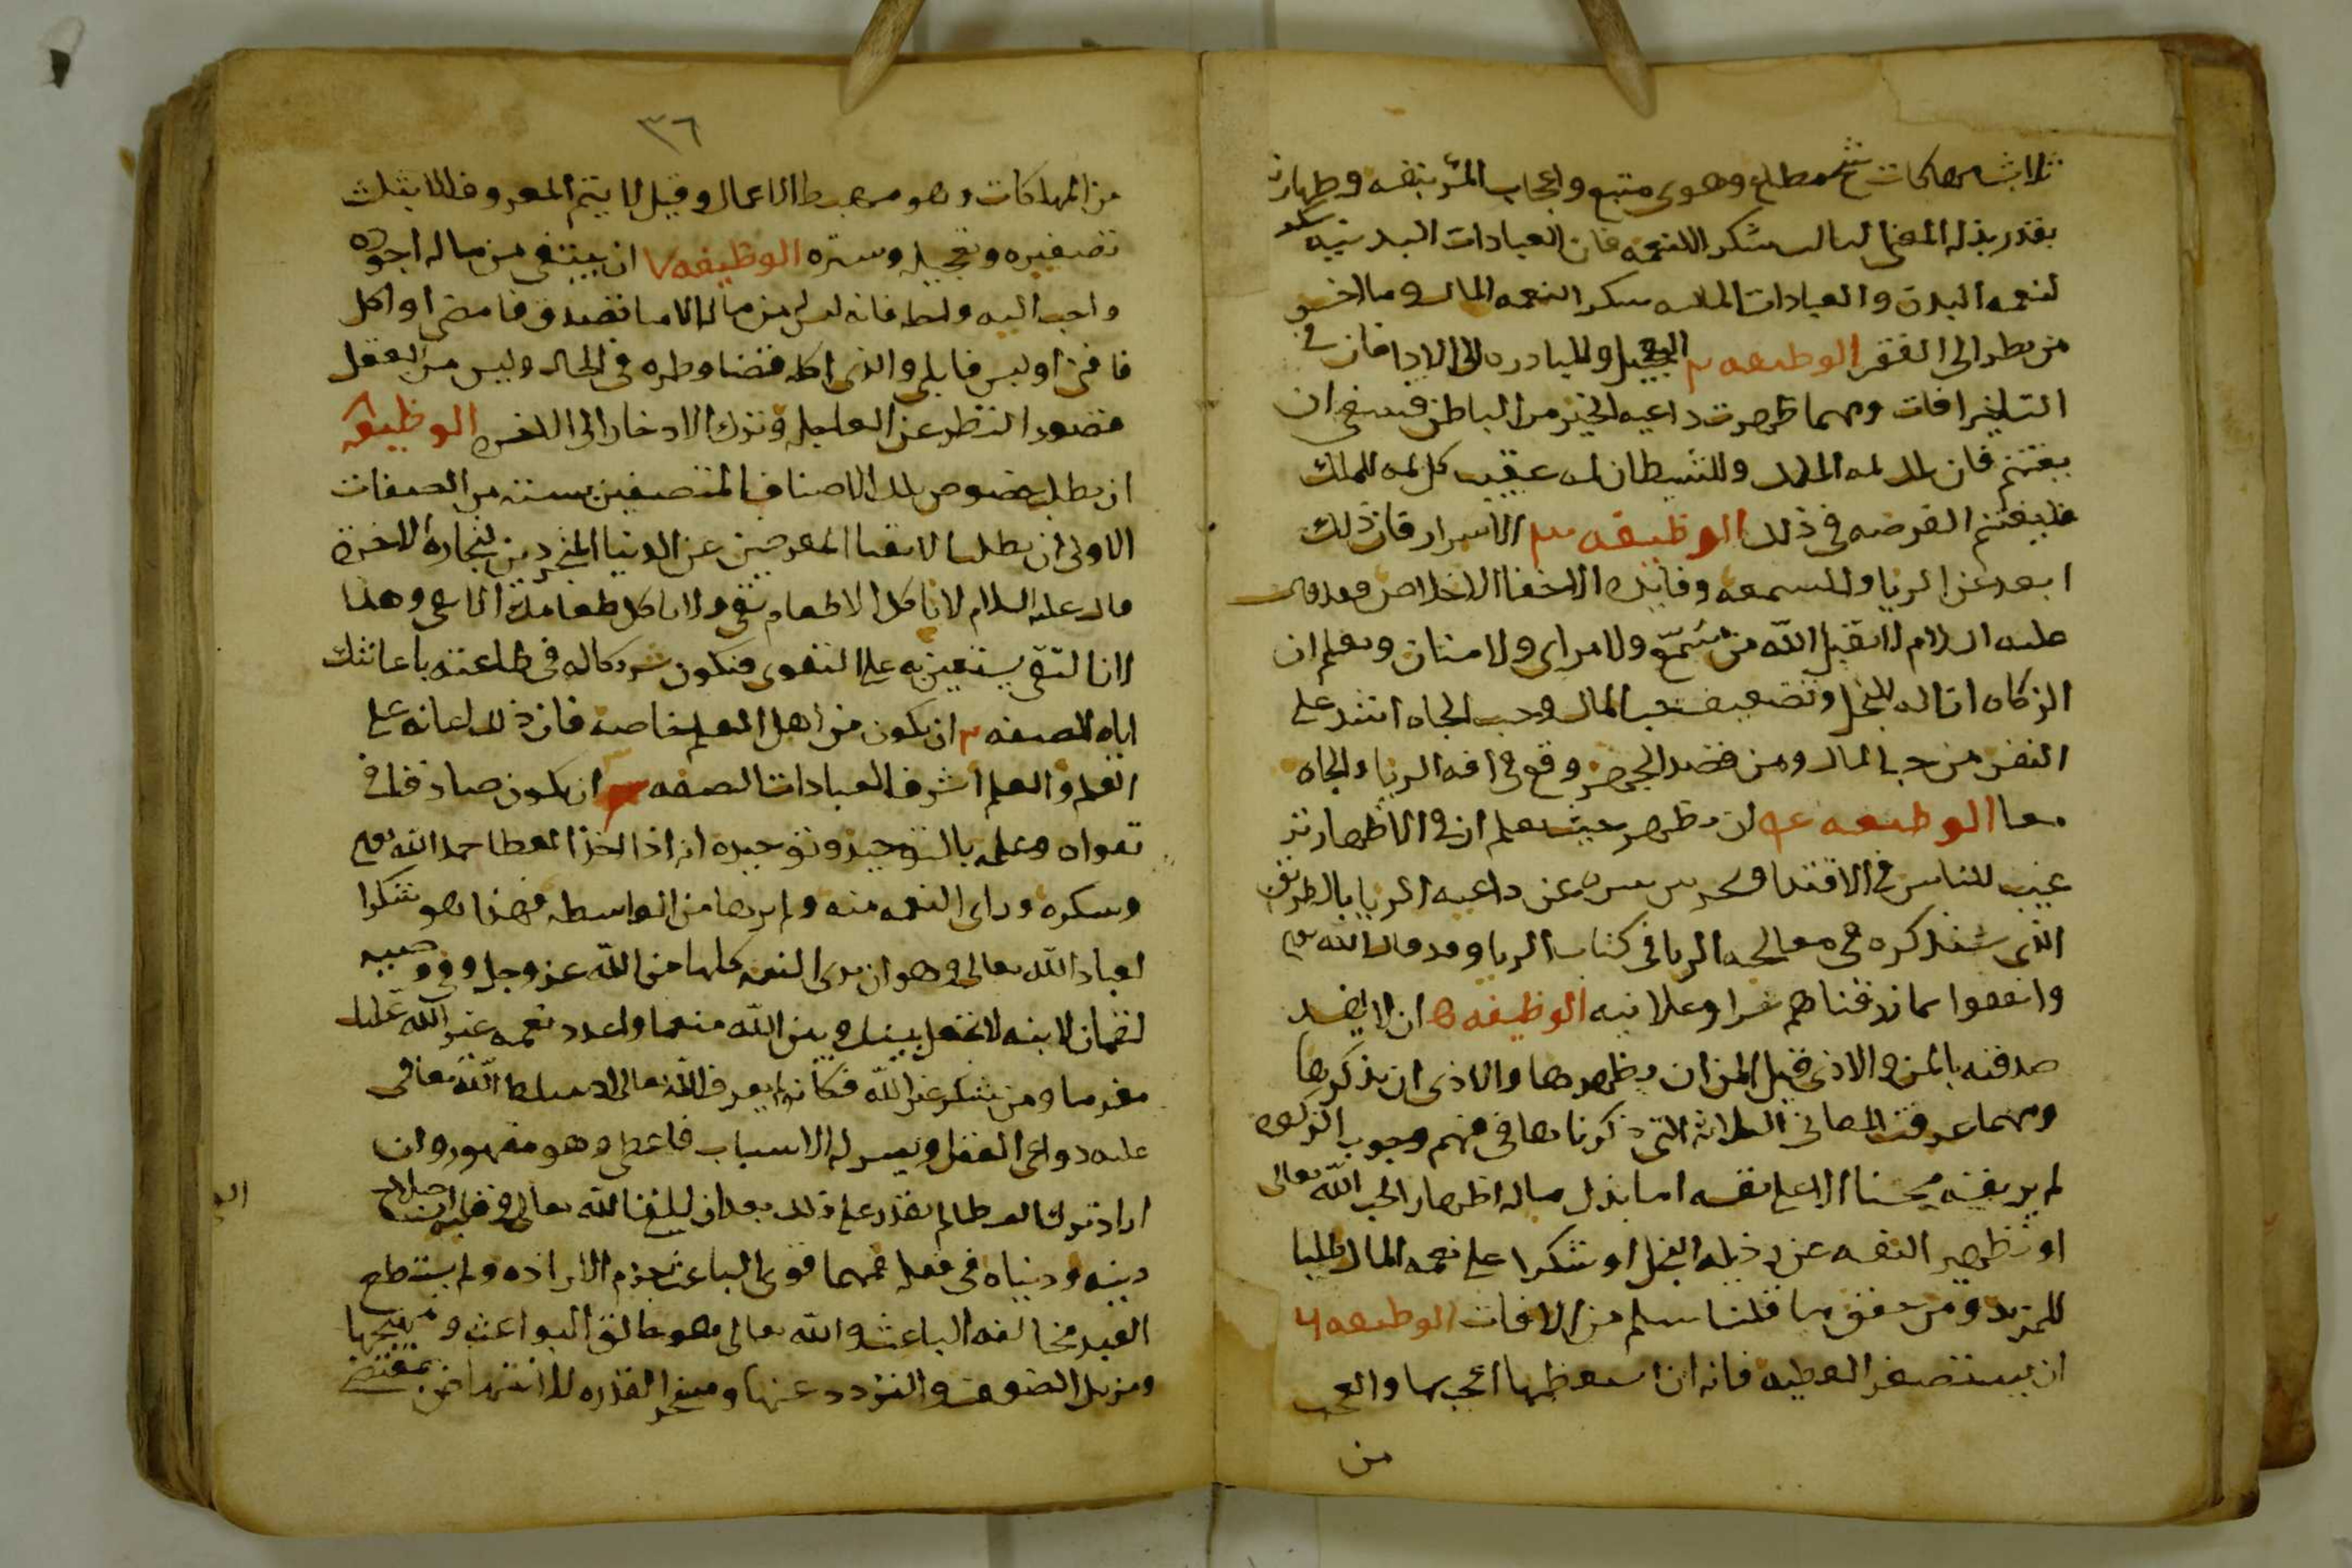 ثلاث مهلكات شح مطاع وهوى متبع واعجاب المرء بنفسه وطهارته
بقدر بذله المعنى الثالث شكر النعمه فان العبادات البدنيه شكر
لنعمه البدن والعبادات الماليه شكر النعمه المال وما اخس
من نظر الى الفقر الوظيفه ٢ التعجيل والمبادره الى الادا فان في
التاخير افات ومهما ظهرت داعيه الخير من الباطن فينبغى ان
يغتنم فان ذلك لمه الملك وللشيطان لمه عقيب كل لمه للملك
فليغتنم الفرصه فى ذلك الوظيفه ٣ الاسرار فان ذلك
ابعد عن الريا والسمعه وفايدة الاخفا الاخلاص فقد قال
عليه السلام لا يقبل الله من مُسمّع ولا مراى ولا منان ويعلم ان
الزكاه ازاله للبخل وتضعيف حب المال وحب الجاه اشد على
النفس من حب المال ومن قصد وقع في افه الريا والجاه
معا الوظيفه ٤ ان يظهر حيث يعلم ان في الاظهار تر
غيب للناس في الاقتدا ويحرس سره عن داعيه الريا بالطريق
الذى سنذكره فى معالجه الريا فى كتاب الريا وقد قال الله تع
وانفقوا مما رزقناهم سرا وعلانيه الوظيفه ٥ ان لا يفسد
صدقته بالمن والاذى فقيل المن ان يظهرها والاذى ان يذكرها
ومهما عرفت المعانى الثلاثه التى ذكرناها فى فهم وجوب الزكوه
لم ير نفسه محسنا الا على نفسه اما ببذل ماله اظهارا لحب الله تعالى
او تطهير النفسه عن رذيله البخل او شكرا على نعمه المال طلبا
للمزيد ومن حقق ما قلنا سلم من الافات الوظيفه ٦
ان يستصغر العطيه فانه ان استعظمها اعجب بها والعجب
من
٣٦
من المهلكات وهو محبط الاعمال وقيل لا يتم المعروف الا بثلاث
تصغيره وتعجيله وستره الوظيفه ٧ ان ينتقى من ماله اجوده
واحب اليه واطيبه فانه ليس له من ماله الا ما تصدق فامضى او اكل
فافنى او لبس فابلى والذى اكله قضا وطره فى الحال وليس من العقل
قصور النظر عن العاجله وترك الادخار الى الاخره الوظيفه
ان يطلب خصوص تلك الاصناف المتصفين بسته من الصفات
الاولى ان يطلب الاتقيا المعرضين عن الدنيا المتجردين لتجارة الاخرة
قال عليه السلام لا تاكل الا طعام تقى ولا ياكل طعامك الا تقى وهذا
لان التقى يستعين به على التقوى فتكون شريكا له فى طاعته باعانتك
اياه الصفه ٢ ان يكون من اهل العلم خاصه فان ذلك اعانه على
العلم والعلم اشرف العبادات الصفه ٣ ان يكون صادقا فى
تقواه وعلمه بالتوحيد وتوحيده انه اذا اخذ العطا حمد الله تع
وشكره وراى النعمه منه ولم يرها من الواسطه فهذا هو شكرا
لعباد الله تعالى وهو ان يرى النعمه كلها من الله عز وجل وفى وصيه
لقمان لابنه لا تجعل بينك وبين الله منعما واعدد نعمه غير الله عليك
مغرما ومن شكر غير الله فكانه لم يعرف الله تعالى اذ سلط الله تعالى
عليه دواعى الفعل ويسر له الاسباب فاعطى وهو مقهور وان
اراد ترك العطا لم يقدر على ذلك بعد ان القى الله تعالى فى قلبه ان صلاح
دينه ودنياه فى فعله فمهما قوى الباعث جزم الاراده ولم يستطع
العبد مخالفه الباعث والله تعالى هو خالق البواعث ومهيجها
ومزيل الضعف والتردد عنها ومسخر القدره للانتهاض بمقتضى